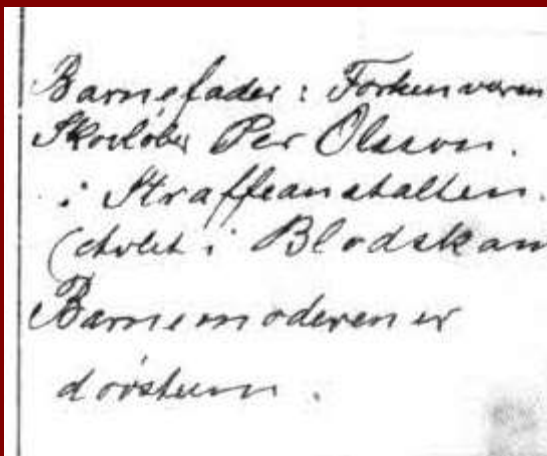 Barnefader: Forhenværen
Skovløber Per Olsson.
i Straffeanstalten.
i Blodskam
Barnemoderen er
døvstum.